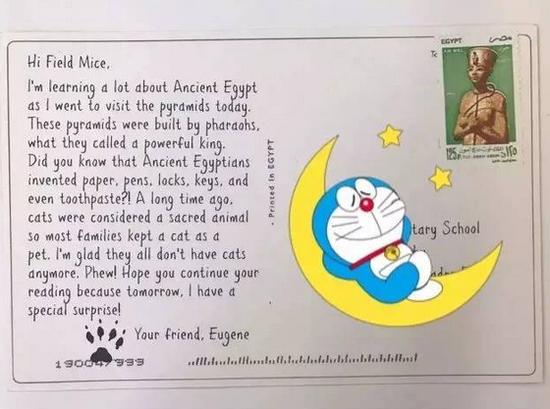 Hi Field Mice,
I'm learning a lot about Ancient Egypt
as I went to visit the pyramids today.
These pyramids were built by pharaohs,
what they called a powerful king.
Did you know that Ancient Egyptians
invented paper, pens, locks, keys, and
even toothpaste?! A long time ago,
cats were considered a sacred animal
so most families kept a cat as a
pet. I'm glad they all don't have cats
anymore. Phew! Hope you continue your
reading because tomorrow, I have a
special surprise!
Your friend, Eugene
Printed in EGYPT
EGYPT
To
tary School